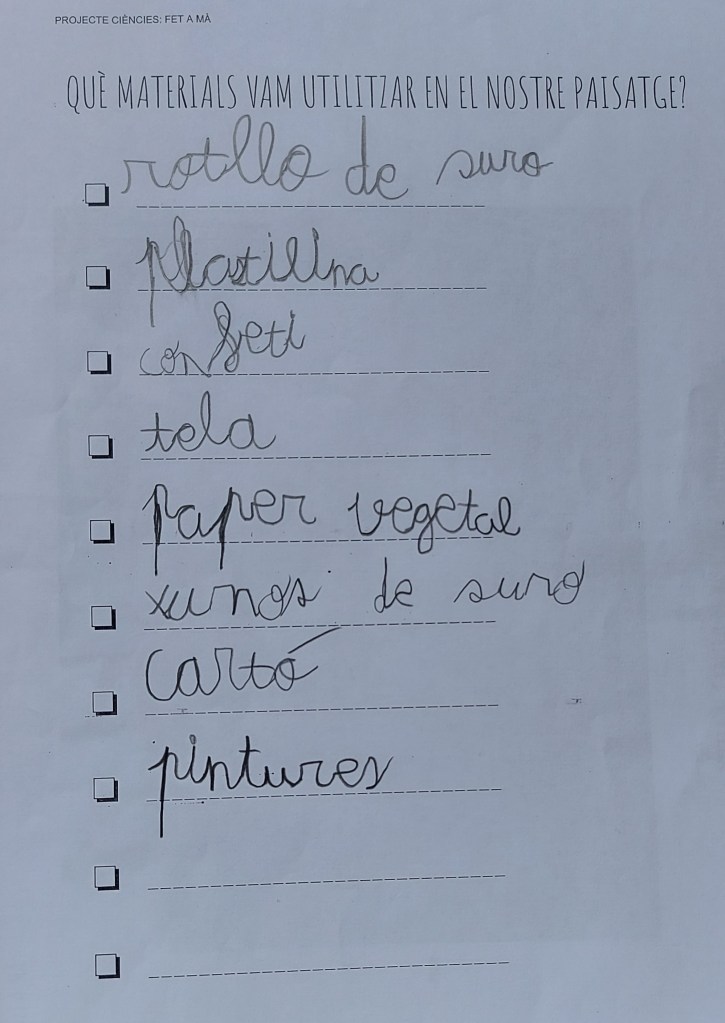 PROJECTE CIÈNCIES: FET A MÀ
QUÈ MATERIALS VAM UTILITZAR EN EL NOSTRE PAISATGE?
rotllo de suro
plastilina
confeti
tela
paper vegetal
xunos de suro
cartó
pintures